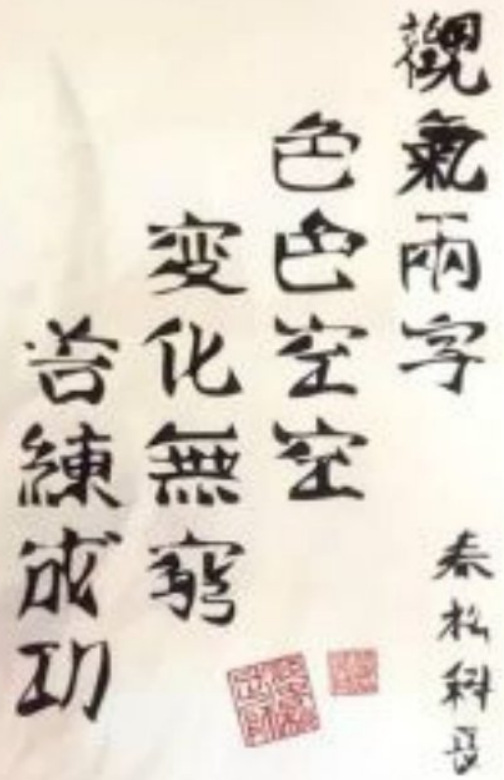 觀氣兩字
色色空空
变化無窮
苦練成功
春松科長